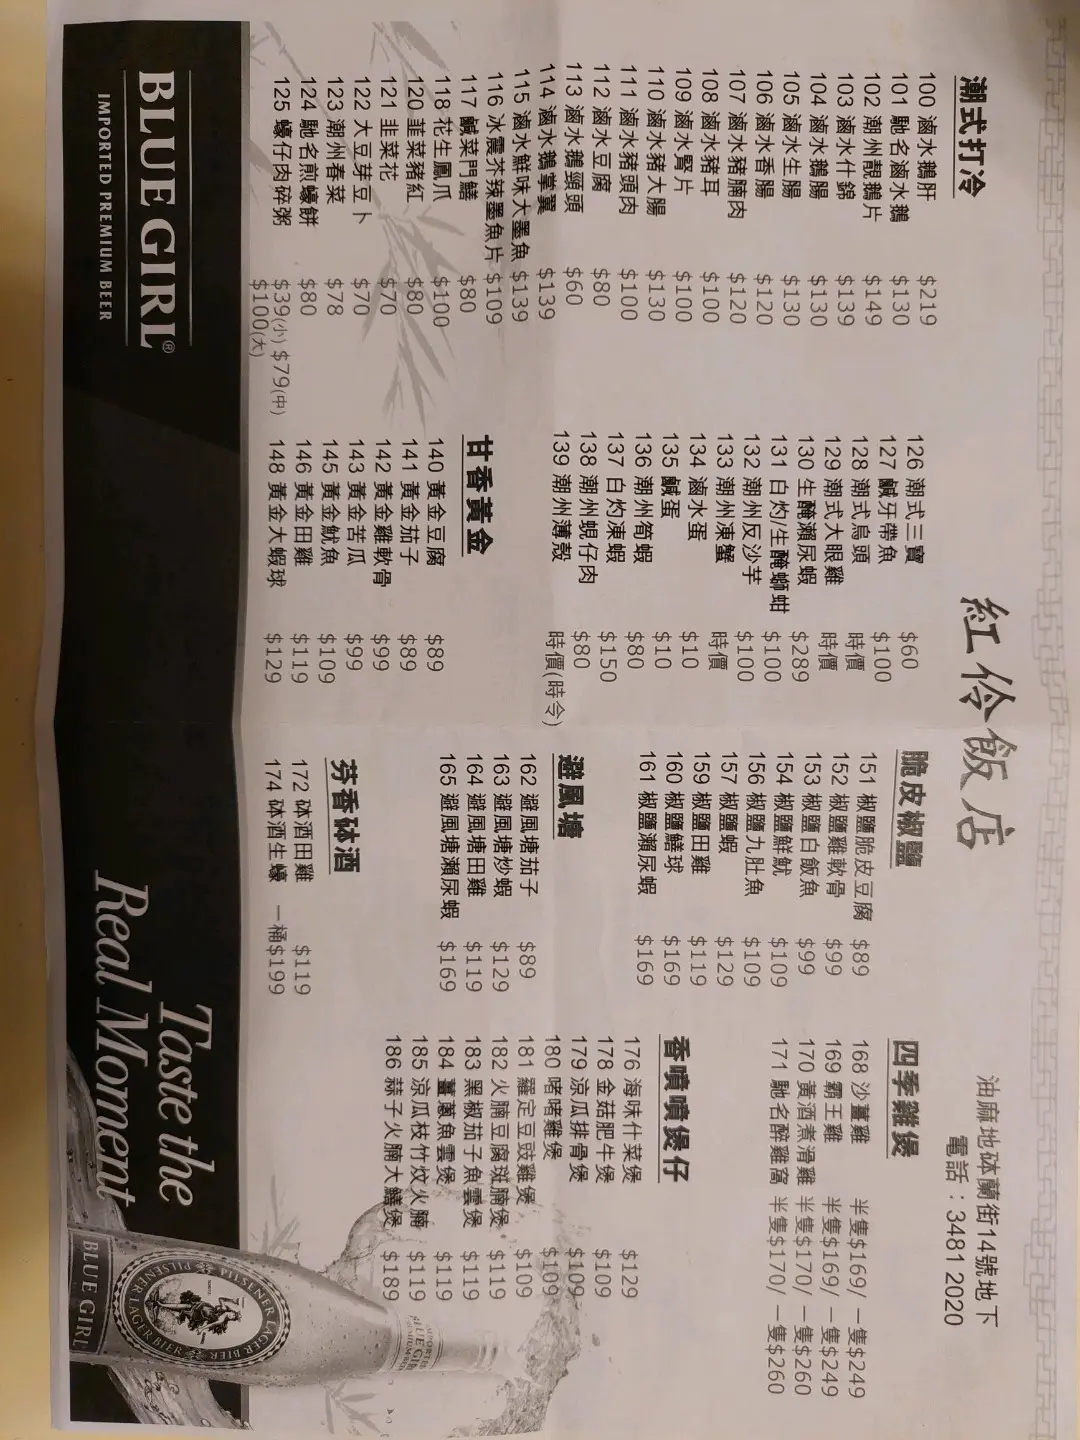 紅伶飯店
油麻地砵蘭街14號地下
電話：3481 2020
潮式打冷
100 滷水鵝肝 $219
101 馳名滷水鵝 $130
102 潮州靚鵝片 $149
103 滷水什錦 $139
104 滷水鵝腸 $130
105 滷水生腸 $130
106 滷水香腸 $120
107 滷水豬腩肉 $120
108 滷水豬耳 $100
109 滷水腎片 $100
110 滷水豬大腸 $130
111 滷水豬頭肉 $100
112 滷水豆腐 $80
113 滷水鵝頸頭 $60
114 滷水鵝掌翼 $139
115 滷水鮮味大墨魚 $139
116 冰震芥辣墨魚片 $109
117 鹹菜門鱔 $80
118 花生鳳爪 $100
120 韮菜豬紅 $80
121 韭菜花 $70
122 大豆芽豆卜 $70
123 潮州春菜 $78
124 馳名煎蠔餅 $80
125 蠔仔肉碎粥 $39(小) $79(中)
$100(大)
126 潮式三寶 $60
127 鹹牙帶魚 $100
128 潮式烏頭 時價
129 潮式大眼雞 時價
130 生醃瀨尿蝦 $289
131 白灼/生醃螄蚶 $100
132 潮州反沙芋 $100
133 潮州凍蟹 時價
134 滷水蛋 $10
135 鹹蛋 $10
136 潮州筍蝦 $80
137 白灼凍蝦 $150
138 潮州蜆仔肉 $80
139 潮州薄殼 時價(時令)
甘香黃金
140 黃金豆腐 $89
141 黃金茄子 $89
142 黃金雞軟骨 $99
143 黃金苦瓜 $99
145 黃金魷魚 $109
146 黃金田雞 $119
148 黃金大蝦球 $129
脆皮椒鹽
151 椒鹽脆皮豆腐 $89
152 椒鹽雞軟骨 $99
153 椒鹽白飯魚 $99
154 椒鹽鮮魷 $109
156 椒鹽九肚魚 $109
157 椒鹽蝦 $129
159 椒鹽田雞 $119
160 椒鹽鱔球 $169
161 椒鹽瀨尿蝦 $169
避風塘
162 避風塘茄子 $89
163 避風塘炒蝦 $129
164 避風塘田雞 $119
165 避風塘瀨尿蝦 $169
芬香砵酒
172 砵酒田雞 $119
174 砵酒生蠔 一桶$199
四季雞煲
168 沙薑雞 半隻$169/ 一隻$249
169 霸王雞 半隻$169/ 一隻$249
170 黃酒煮滑雞 半隻$170/ 一隻$260
171 馳名醉雞窩 半隻$170/ 一隻$260
香噴噴煲仔
176 海味什菜煲 $129
178 金菇肥牛煲 $109
179 涼瓜排骨煲 $109
180 啫啫雞煲 $109
181 羅定豆豉雞煲 $109
182 火腩豆腐斑腩煲 $119
183 黑椒茄子魚雲煲 $119
184 薑蔥魚雲煲 $119
185 涼瓜枝竹炆火腩 $119
186 蒜子火腩大鱔煲 $189
BLUE GIRL®
IMPORTED PREMIUM BEER
Taste the
Real Moment
PILSENER LAGER BIER
PILSENER LAGER BIER
BLUE GIRL
BLUE GIRL